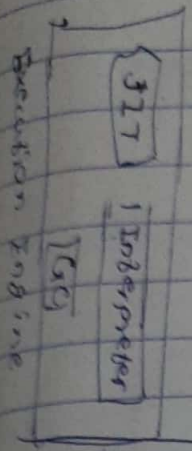 JIT
Interpreter
GC
Execution Engine